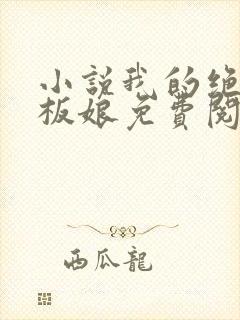 小說我的绝
板娘免費閱
西瓜龍